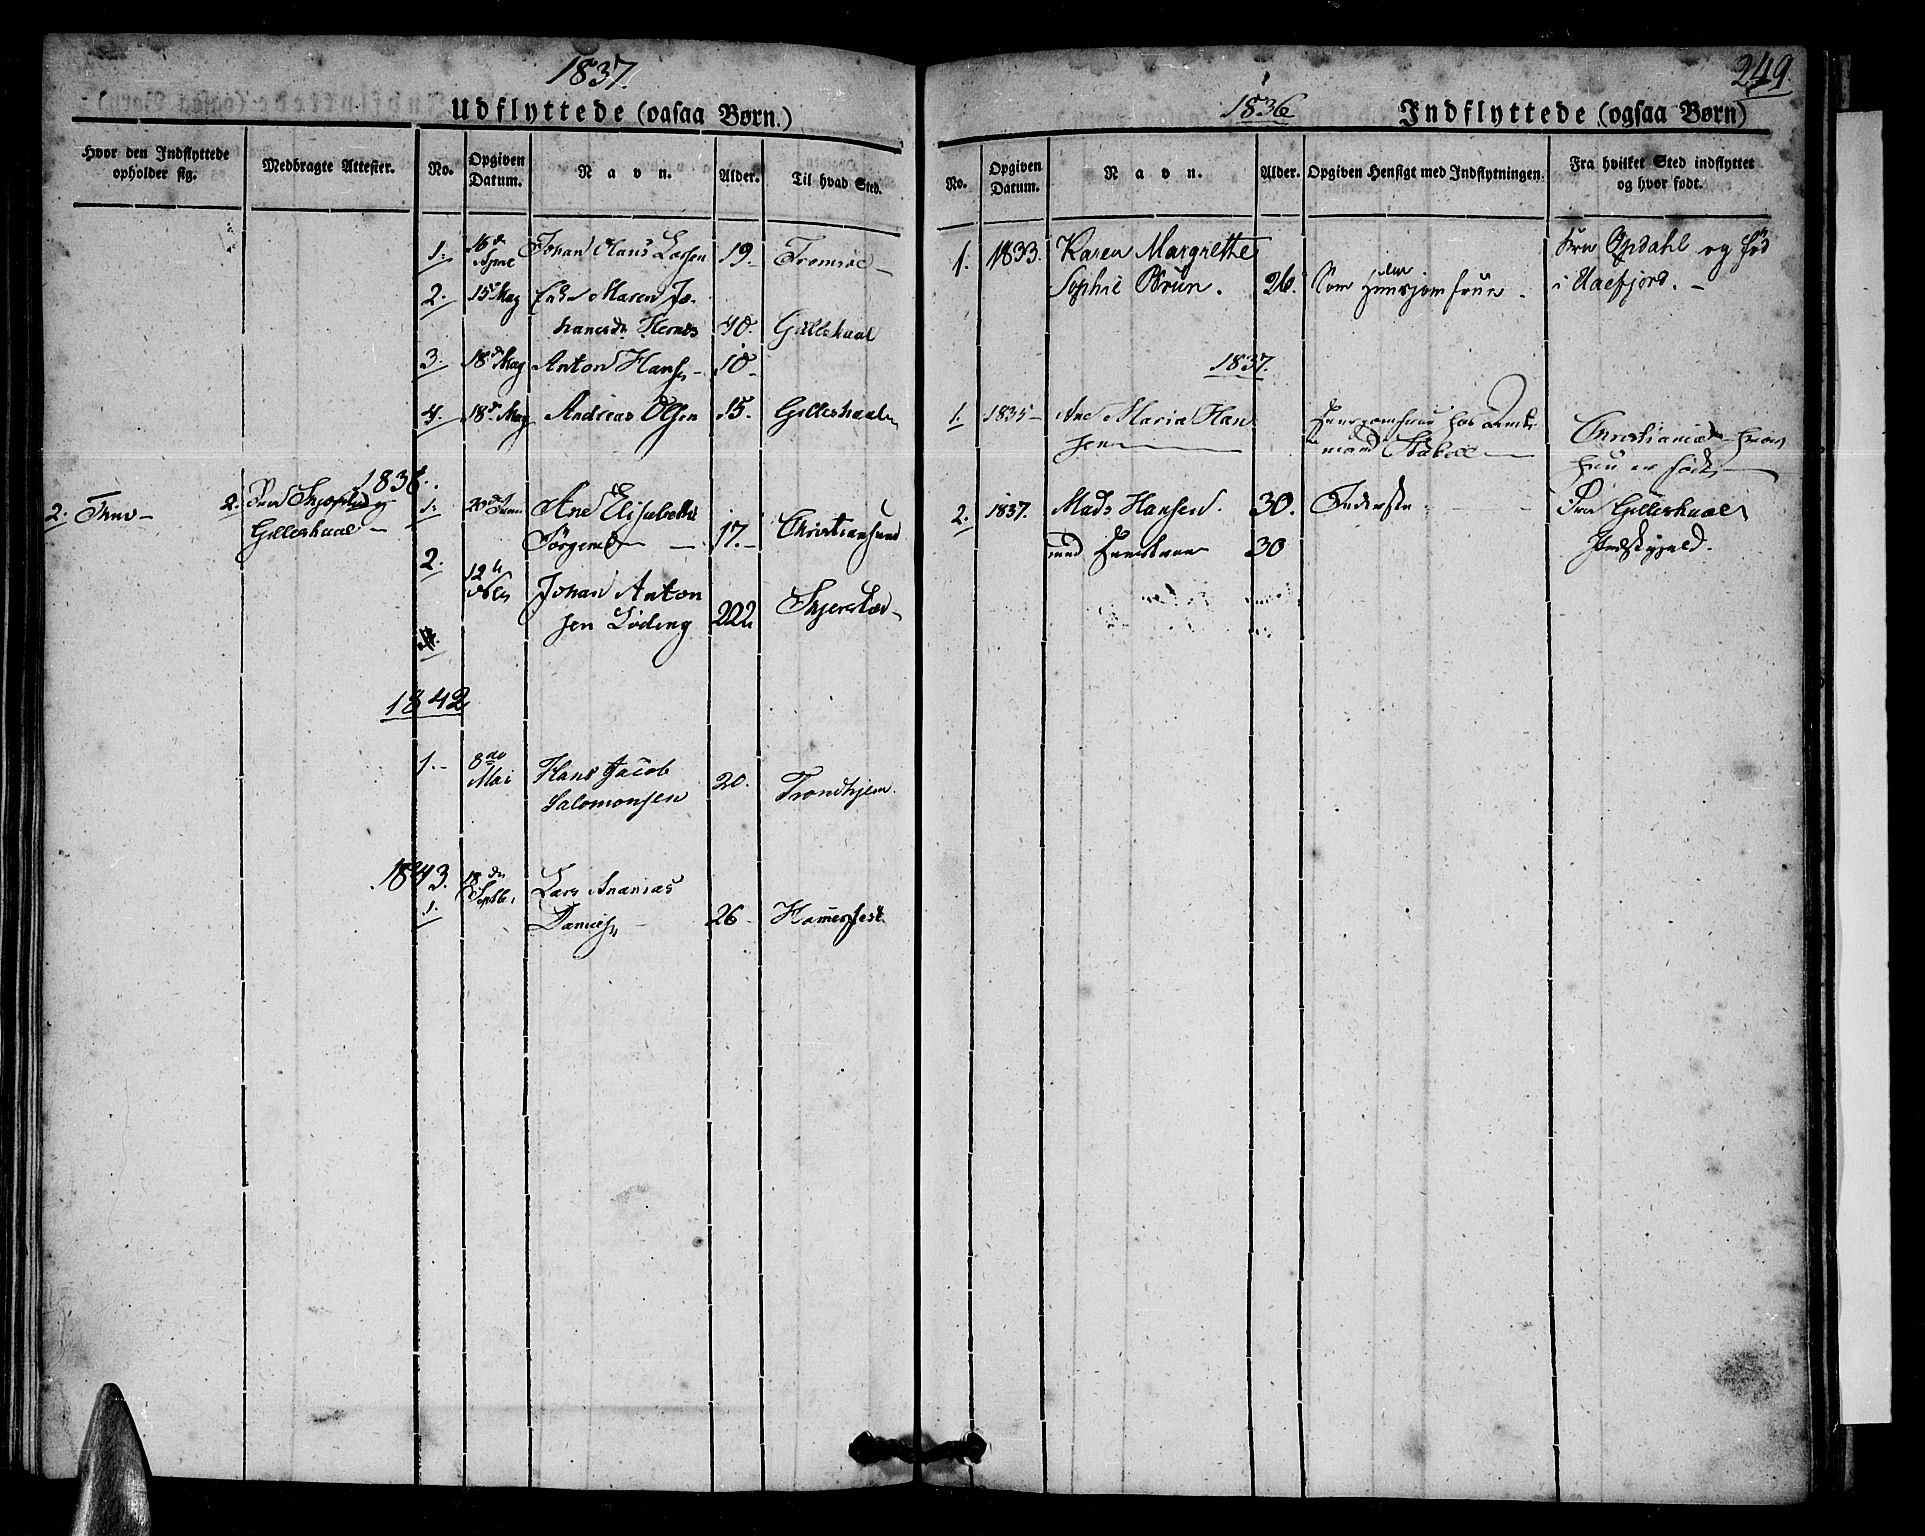 1837.
Udflyttede (ogsaa Børn.)
Hvor den Indflyttede
opholder sig.
Medbragte Attester.
No.
Opgiven
Datum.
Navn.
Alder.
Til hvad Sted.
1. 16de April Johan Claus Larsen 19. Tromsøe
2. 15 May Enke Maren Jo-
hannesdr. Hernes 40. Gilleskaal
3. 18d May Anton Hans. 10.
4. 18d May Andreas Olsen 15. Gilleskaal
1838.
2. 2. Fra
Gilleskaal
1. Ane Elisabeth
Jørgensd. 17. Christiansund
2. 12te Johan Anton
sen Løding 22 Skjerstad
1842
1. 8de
Mai Hans Jacob
Salomonsen 20. Trondhjem.
1843.
1. 18de
Septb. Lars Ananias
Daniels. 26 Hamerfest
249.
1836
Indflyttede (ogsaa Børn)
No.
Opgiven
Datum.
Navn.
Alder.
Opgiven Hensigt med Indflytningen.
Fra hvilket Sted indflyttet
og hvor født.
1. 1833. Karen Margrethe
Sophie Brun. 26. Som Huusjomfrue. Fra Opdahl og fød
i
1837.
1. 1835 Ane Maria Han
sen Huusjomfrue hos Amt
mand Christiania hvor
hun er født
2. 1837. Mads Hansen. 30. Inderste Fra Gilleskaal
med Huustrue 30 Præstegjeld.